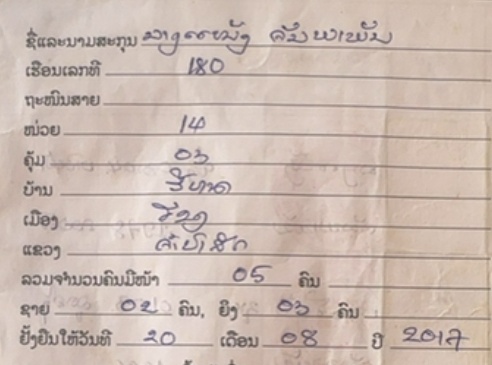 ຊື່ແລະນາມສະກຸນ
ເຮືອນເລກທີ 180
ຖະໜົນສາຍ
ໜ່ວຍ 14
ຄຸ້ມ 03
ບ້ານ
ເມືອງ
ແຂວງ ຈຳປາສັກ
ລວມຈຳນວນຄົນມີໜ້າ 05 ຄົນ
ຊາຍ 02 ຄົນ, ຍິງ 03 ຄົນ
ຢັ້ງຢືນໃຫ້ວັນທີ 20 ເດືອນ 08 ປີ 2017